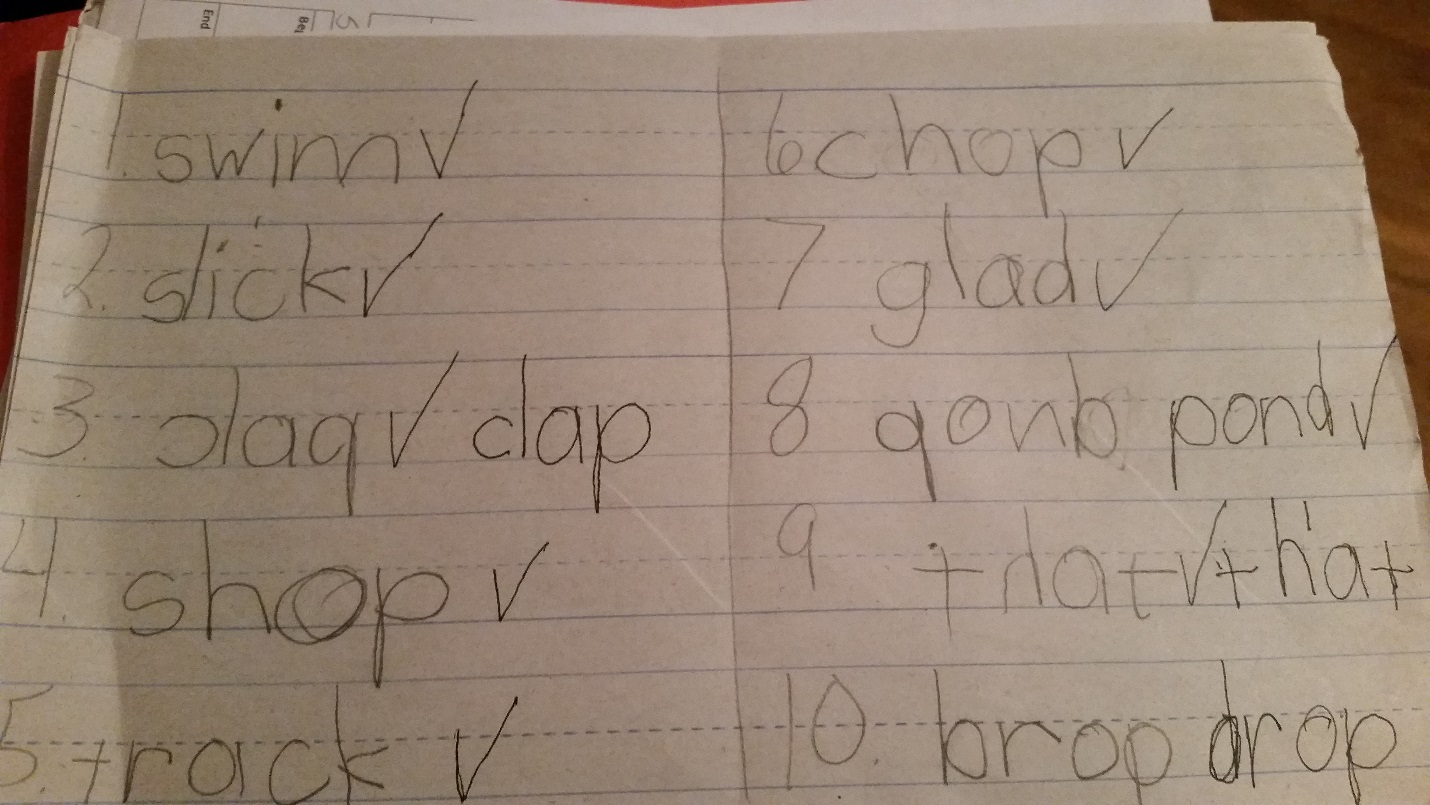 End Be
1. swim ✓
2. slick ✓
3. claq ✓ clap
4. shop ✓
5. track ✓
6 chop ✓
7 glad ✓
8 qonb pond ✓
9 that ✓ that
10. brop drop